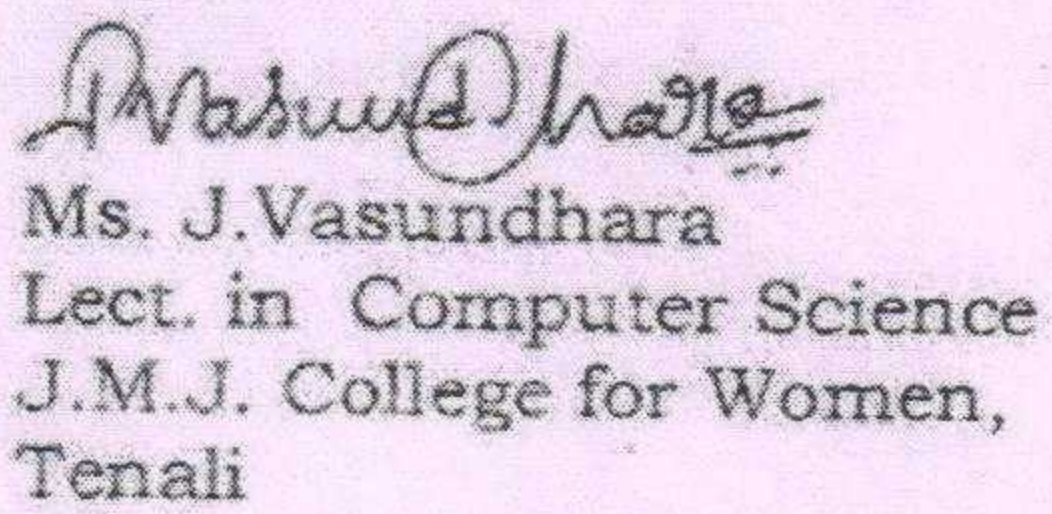 JVasundhara
Ms. J.Vasundhara
Lect. in Computer Science
J.M.J. College for Women,
Tenali